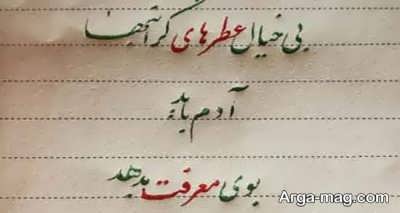 بی خیال عطرهای گرانبها
آدم باید
بوی معرفت بدهد
Arga-mag.com